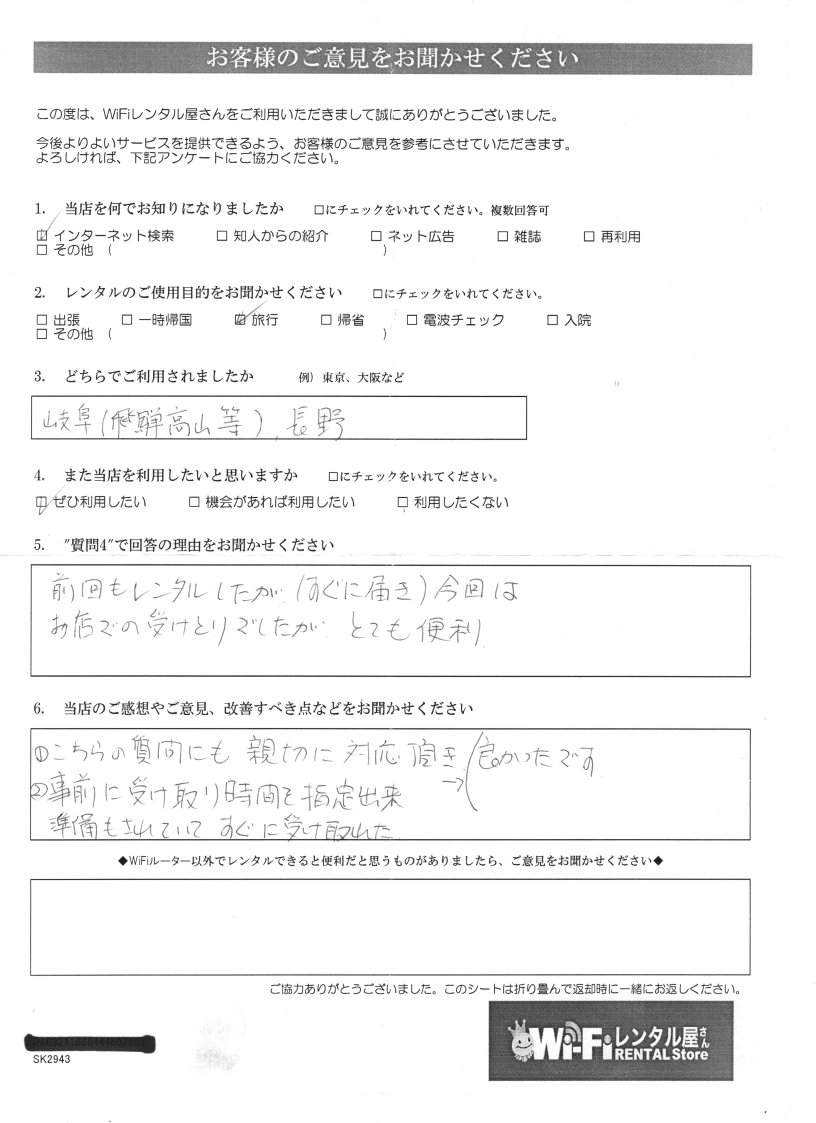 お客様のご意見をお聞かせください
この度は、WiFiレンタル屋さんをご利用いただきまして誠にありがとうございました。
今後よりよいサービスを提供できるよう、お客様のご意見を参考にさせていただきます。
よろしければ、下記アンケートにご協力ください。
1. 当店を何でお知りになりましたか □にチェックをいれてください。複数回答可
☑ インターネット検索 □ 知人からの紹介 □ ネット広告 □ 雑誌 □ 再利用
□ その他 ( )
2. レンタルのご使用目的をお聞かせください □にチェックをいれてください。
□ 出張 □ 一時帰国 ☑ 旅行 □ 帰省 □ 電波チェック □ 入院
□ その他 ( )
3. どちらでご利用されましたか 例) 東京、大阪など
岐阜(飛騨高山等)、長野
4. また当店を利用したいと思いますか □にチェックをいれてください。
☑ ぜひ利用したい □ 機会があれば利用したい □ 利用したくない
5. "質問4"で回答の理由をお聞かせください
前回もレンタルしたが(すぐに届き)今回は
お店での受けとりでしたが とても便利
6. 当店のご感想やご意見、改善すべき点などをお聞かせください
①こちらの質問にも親切に対応頂き→良かったです
②事前に受け取り時間を指定出来
準備もされていてすぐに受け取れた
◆WiFiルーター以外でレンタルできると便利だと思うものがありましたら、ご意見をお聞かせください◆
ご協力ありがとうございました。このシートは折り畳んで返却時に一緒にお返しください。
SK2943
Wi-Fiレンタル屋さん
RENTAL Store